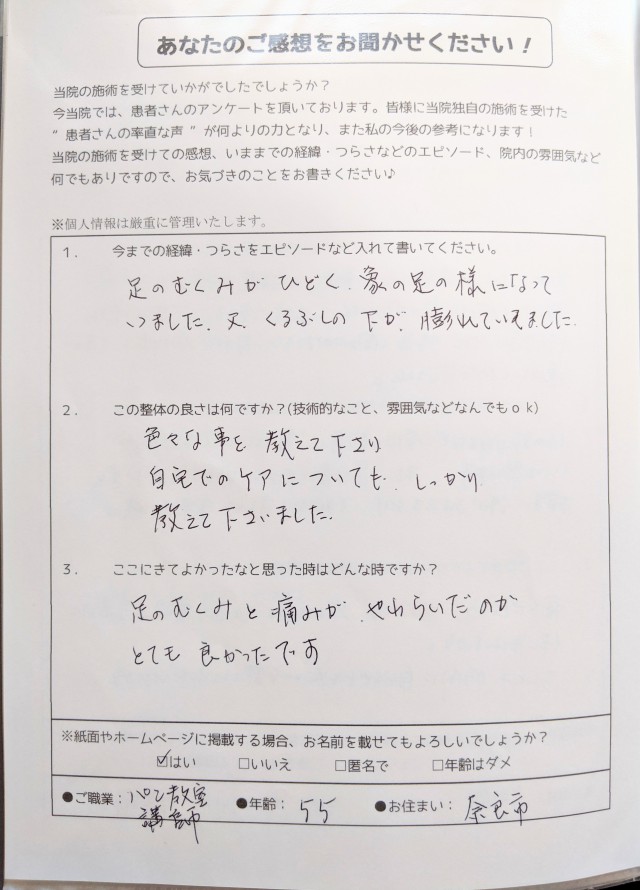 あなたのご感想をお聞かせください！
当院の施術を受けていかがでしたでしょうか？
今当院では、患者さんのアンケートを頂いております。皆様に当院独自の施術を受けた
“ 患者さんの率直な声 ”が何よりの力となり、また私の今後の参考になります！
当院の施術を受けての感想、いままでの経緯・つらさなどのエピソード、院内の雰囲気など
何でもありですので、お気づきのことをお書きください♪
※個人情報は厳重に管理いたします。
１．　今までの経緯・つらさをエピソードなど入れて書いてください。
足のむくみが ひどく、象の足の様になって
いました、又、くるぶしの下が、膨れていました.
２．　この整体の良さは何ですか？(技術的なこと、雰囲気などなんでもｏｋ)
色々な事を 教えて下さり
自宅でのケアについても、しっかり
教えて下さいました.
３．　ここにきてよかったなと思った時はどんな時ですか？
足のむくみと痛みが、やわらいだのが
とても 良かったです
※紙面やホームページに掲載する場合、お名前を載せてもよろしいでしょうか？
☑はい　□いいえ　□匿名で　□年齢はダメ
●ご職業：パン教室 ●年齢： 55 ●お住まい： 奈良市
講師